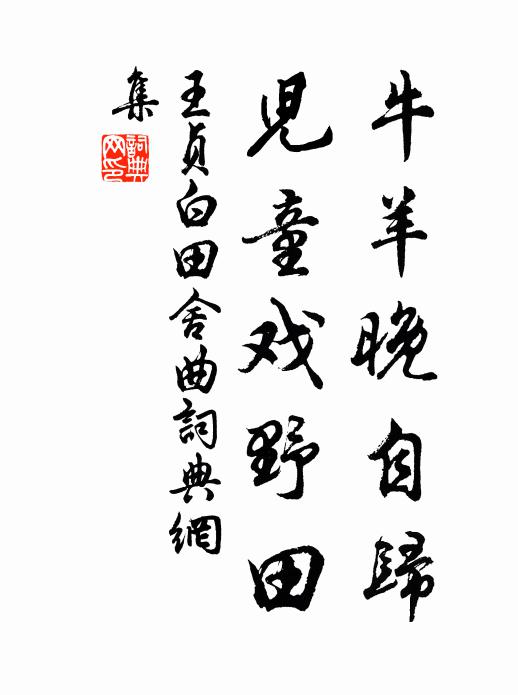 牛羊晚自歸
兒童戏野田
王貞白田舍曲詞典網
集
詞典
网印